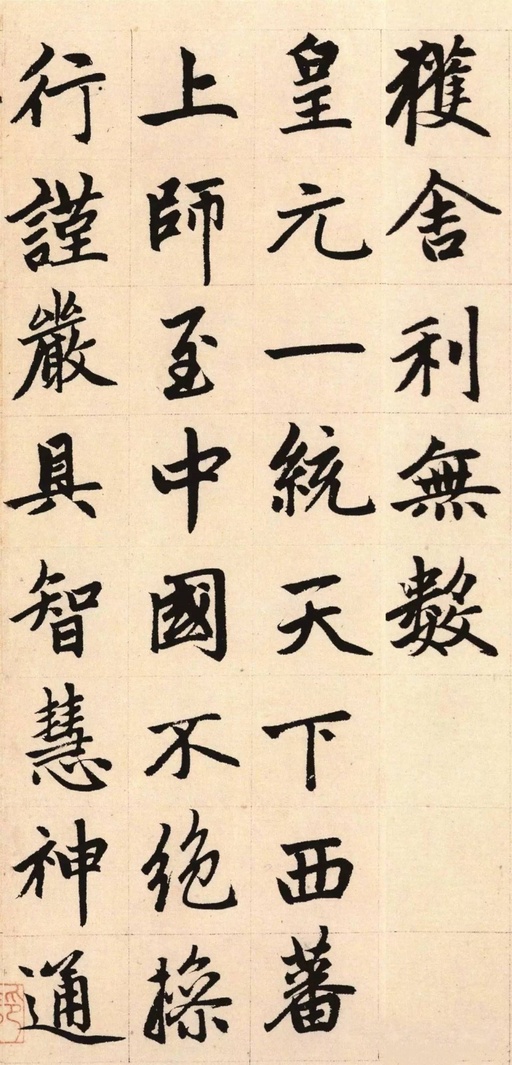 獲舍利無數
皇元一統天下西蕃
上師至中國不絕操
行謹嚴具智慧神通